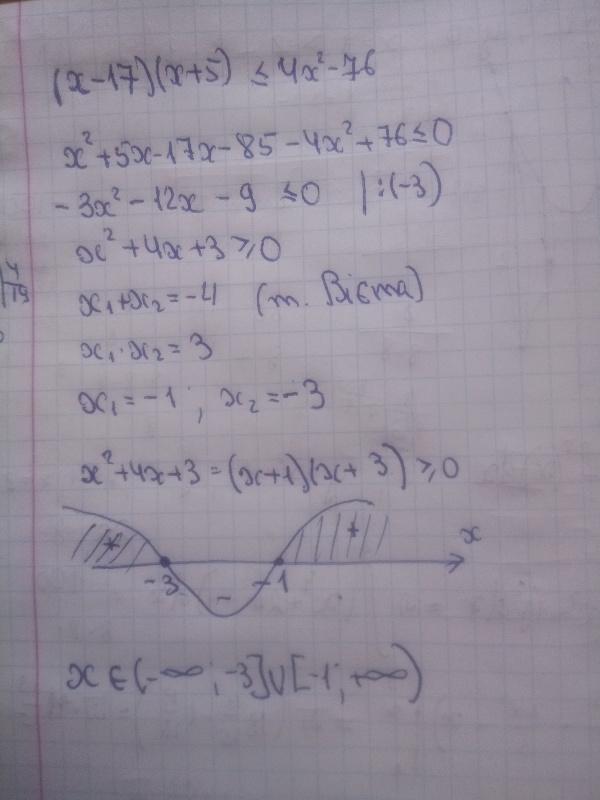 (x-17)(x+5) ≤ 4x²-76
x²+5x-17x-85-4x²+76≤0
-3x²-12x-9 ≤0 |:(-3)
x²+4x+3≥0
x₁+x₂=-4 (т. Вієта)
x₁·x₂=3
x₁=-1; x₂=-3
x²+4x+3=(x+1)(x+3)≥0
+ + x
-3 - -1
x∈(-∞;-3]∪[-1;+∞)